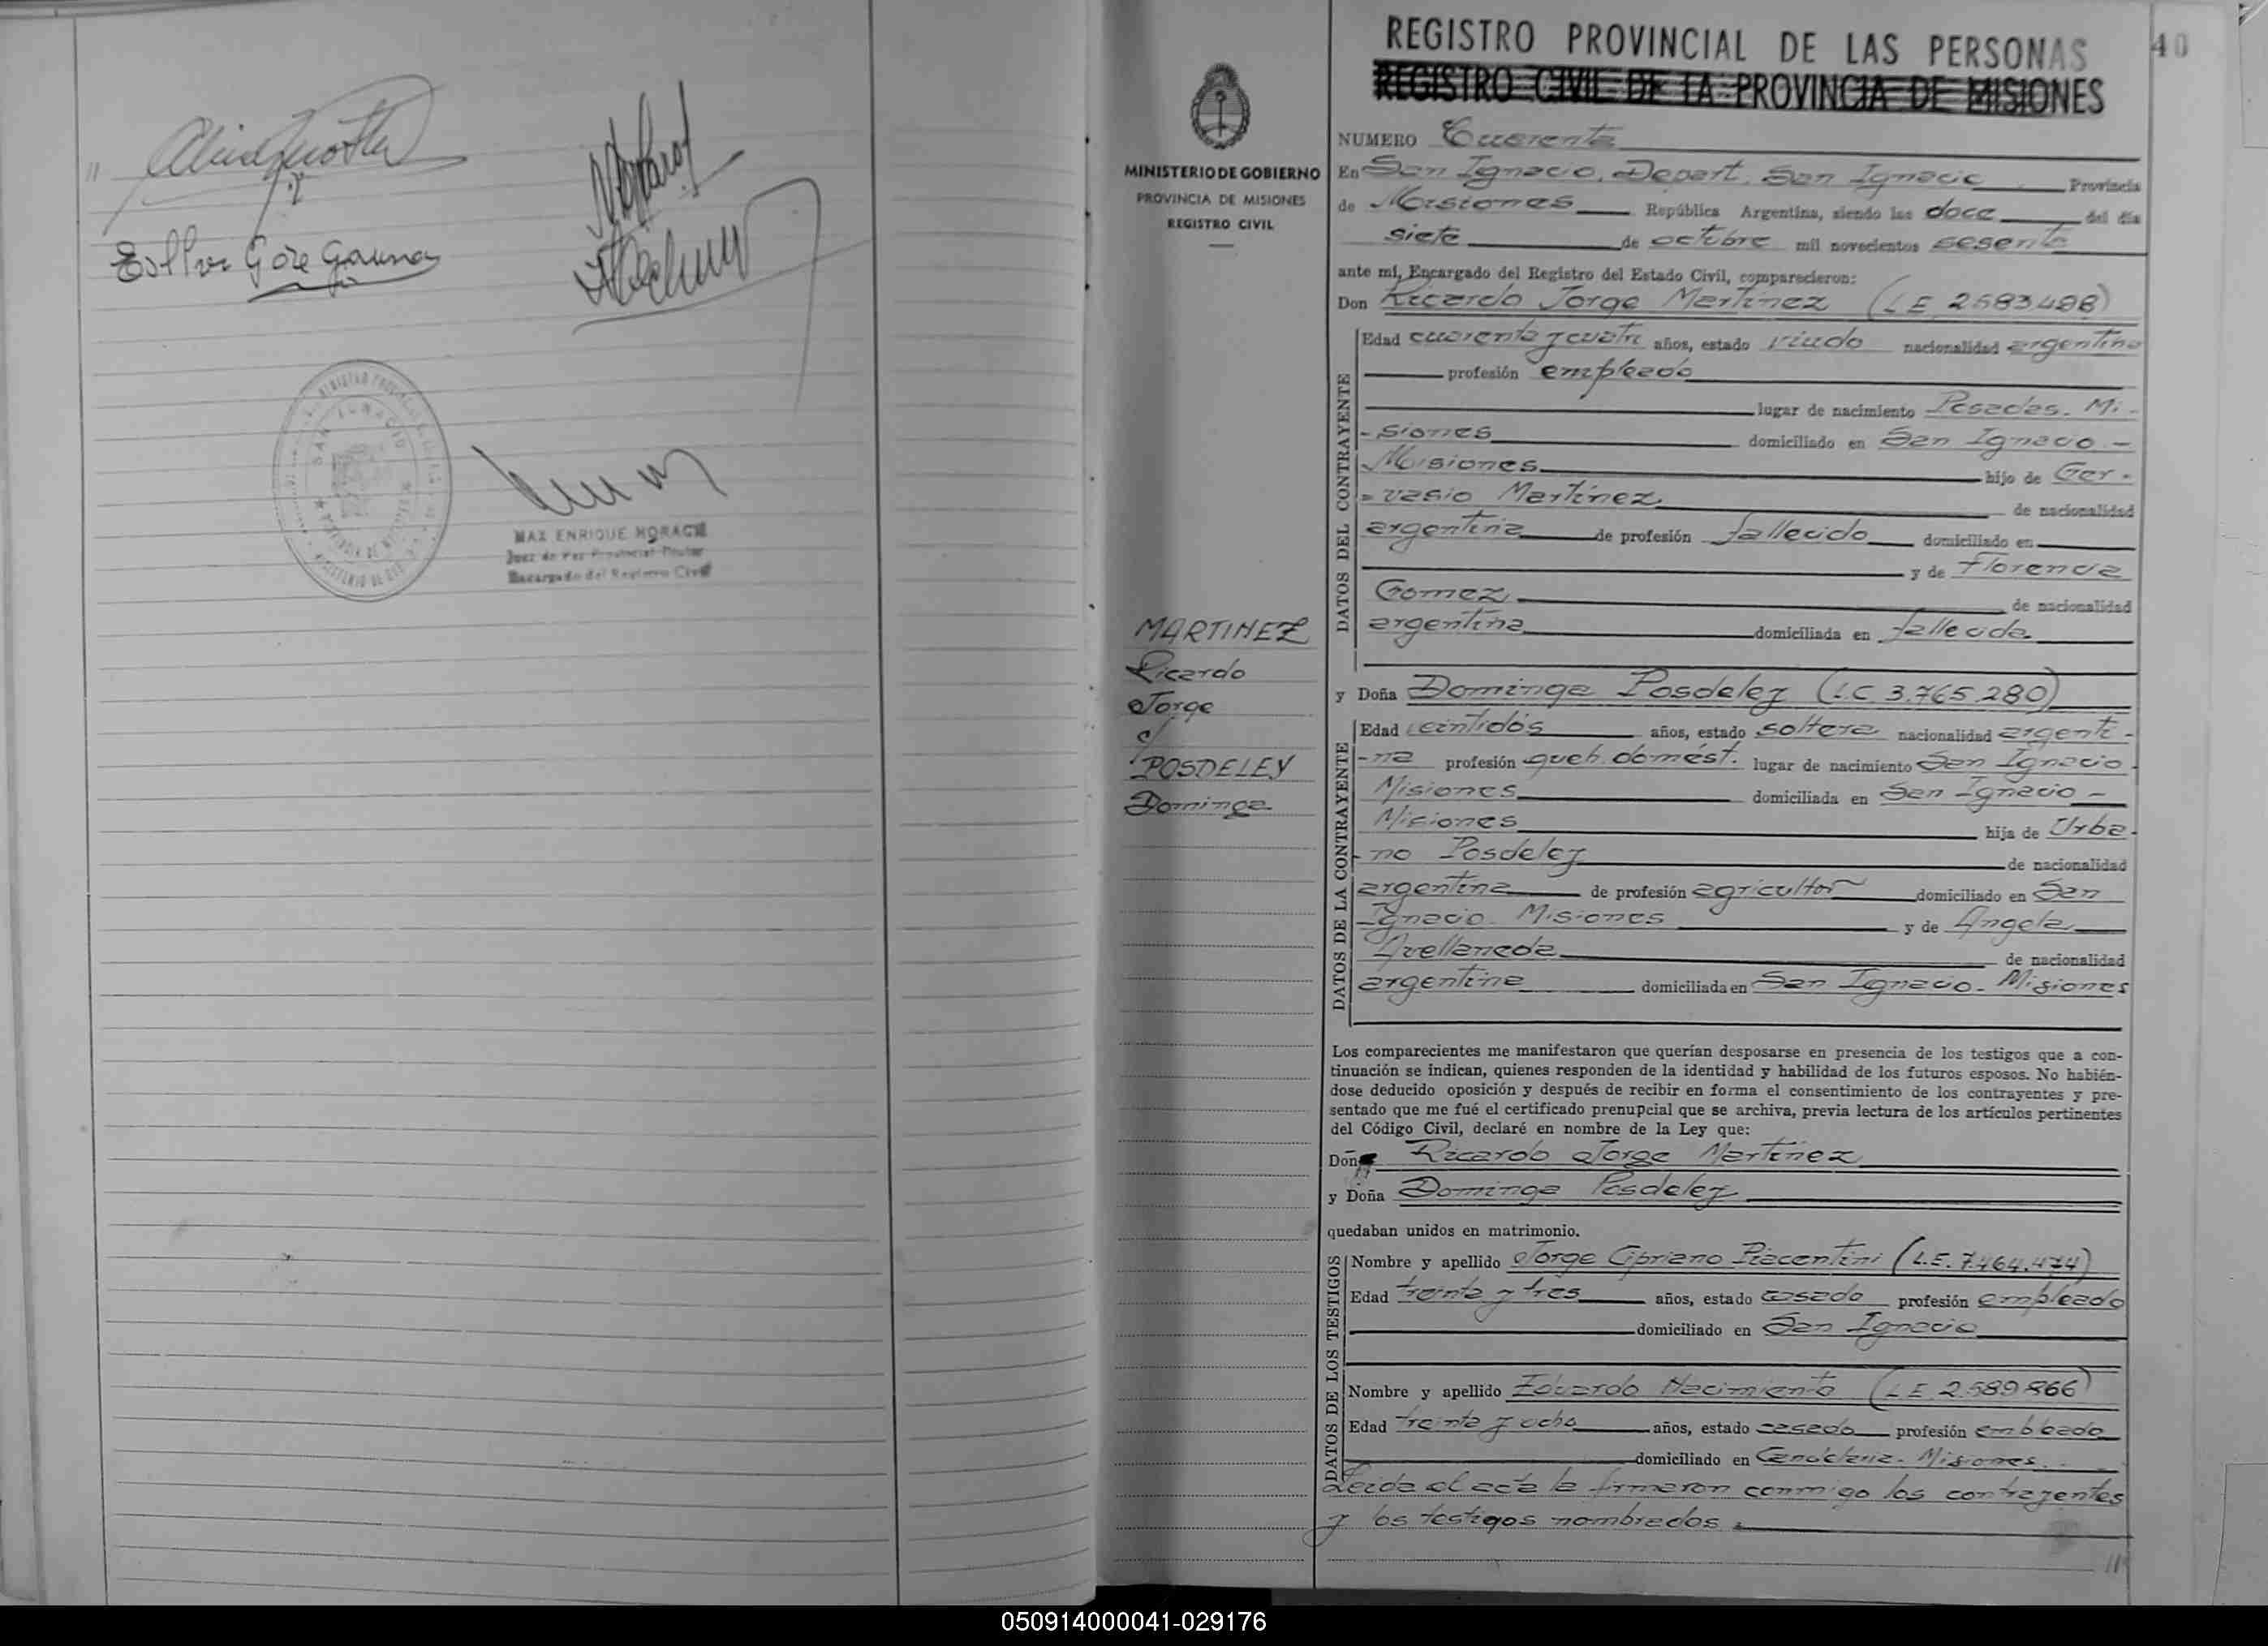 Esther Goze Gauna
SAN IGNACIO
MAX ENRIQUE MORACH
Juez de Paz Provincial Titular
Encargado del Registro Civil
REGISTRO PROVINCIAL DE LAS PERSONAS
40
REGISTRO CIVIL DE LA PROVINCIA DE MISIONES
MINISTERIO DE GOBIERNO
PROVINCIA DE MISIONES
REGISTRO CIVIL
MARTINEZ
Ricardo
Jorge
c/
POSDELEY
Dominga
NUMERO Cuarenta
En San Ignacio, Depart. San Ignacio Provincia
de Misiones República Argentina, siendo las doce del día
siete de octubre mil novecientos sesenta
ante mí, Encargado del Registro del Estado Civil, comparecieron:
Don Ricardo Jorge Martinez (L E 2583498)
DATOS DEL CONTRAYENTE
Edad cuarenta y cuatro años, estado viudo nacionalidad argentina
profesión empleado
lugar de nacimiento Posadas. Mi-
-siones domiciliado en San Ignacio -
Misiones hijo de Ger-
-vasio Martinez de nacionalidad
argentina de profesión fallecido domiciliado en
y de Florencia
Gomez de nacionalidad
argentina domiciliada en fallecida
y Doña Dominga Posdeley (L C 3.765.280)
DATOS DE LA CONTRAYENTE
Edad veintidós años, estado soltera nacionalidad argenti-
-na profesión queh. domést. lugar de nacimiento San Ignacio
Misiones domiciliada en San Ignacio -
Misiones hija de Urba-
-no Posdeley de nacionalidad
argentina de profesión agricultor domiciliado en San
Ignacio - Misiones y de Angela
Avellaneda de nacionalidad
argentina domiciliada en San Ignacio - Misiones
Los comparecientes me manifestaron que querían desposarse en presencia de los testigos que a con-
tinuación se indican, quienes responden de la identidad y habilidad de los futuros esposos. No habién-
dose deducido oposición y después de recibir en forma el consentimiento de los contrayentes y pre-
sentado que me fué el certificado prenupcial que se archiva, previa lectura de los artículos pertinentes
del Código Civil, declaré en nombre de la Ley que:
Don Ricardo Jorge Martinez
y Doña Dominga Posdeley
quedaban unidos en matrimonio.
DATOS DE LOS TESTIGOS
Nombre y apellido Jorge Cipriano Piacentini (L.E. 7.464.474)
Edad treinta y tres años, estado casado profesión empleado
domiciliado en San Ignacio
Nombre y apellido Eduardo Nacimiento (L E 2.589.866)
Edad treinta y ocho años, estado casado profesión empleado
domiciliado en Candelaria - Misiones.
Leida el acta la firmaron conmigo los contrayentes
y los testigos nombrados.
050914000041-029176